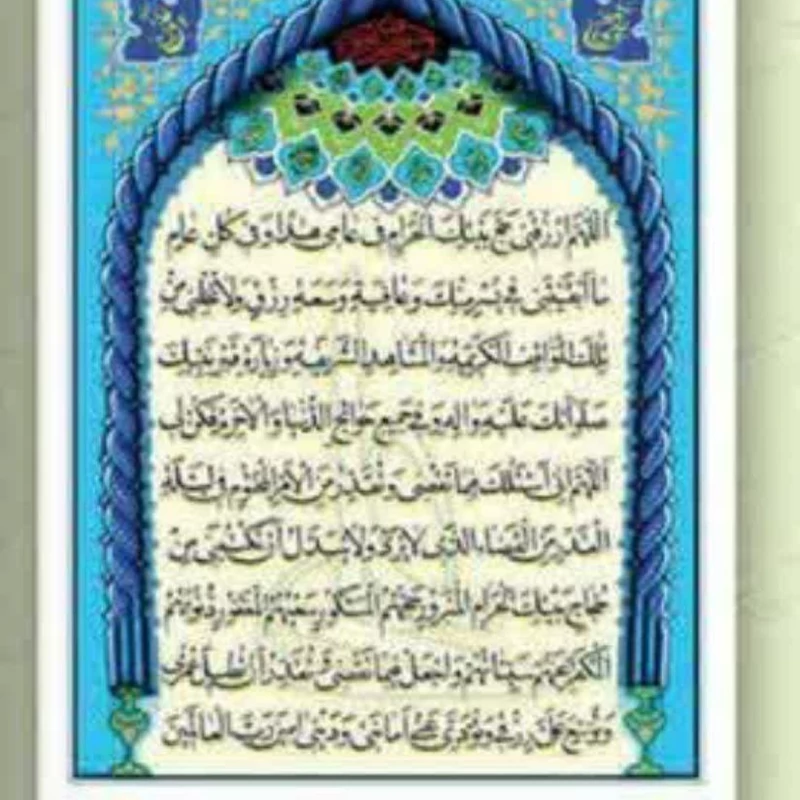 اللّهُمَّ ارْزُقْنى حَجَّ بَيْتِكَ الْحَرامِ فى عامى هذا وَ فى كُلِّ عامٍ
ما اَبْقَيْتَنى فى يُسْرٍ مِنْكَ وَ عافِيَةٍ وَ سَعَةِ رِزْقٍ وَ لا تُخْلِنى مِنْ
تِلْكَ الْمَواقِفِ الْكَريمَةِ وَ الْمَشاهِدِ الشَّريفَةِ وَ زِيارَةِ قَبْرِ نَبِيِّكَ
صَلَواتُكَ عَلَيْهِ وَ آلِهِ وَ فى جَميعِ حَوائِجِ الدُّنْيا وَ الْآخِرَةِ فَكُنْ لى
اَللّهُمَّ اِنّى اَسْئَلُكَ فيما تَقْضى وَ تُقَدِّرُ مِنَ الْاَمْرِ الْمَحْتُومِ فى لَيْلَةِ
الْقَدْرِ مِنَ الْقَضاءِ الَّذى لا يُرَدُّ وَ لا يُبَدَّلُ اَنْ تَكْتُبَنى مِنْ
حُجّاجِ بَيْتِكَ الْحَرامِ الْمَبْرُورِ حَجُّهُمْ الْمَشْكُورِ سَعْيُهُمْ الْمَغْفُورِ ذُنُوبُهُمْ
الْمُكَفَّرِ عَنْهُمْ سَيِّئاتُهُمْ وَ اجْعَلْ فيما تَقْضى وَ تُقَدِّرُ اَنْ تُطيلَ عُمْرى
وَ تُوَسِّعَ عَلَىَّ رِزْقى وَ تُؤَدِّىَ عَنّى اَمانَتى وَ دَيْنى آمينَ رَبَّ الْعالَمينَ